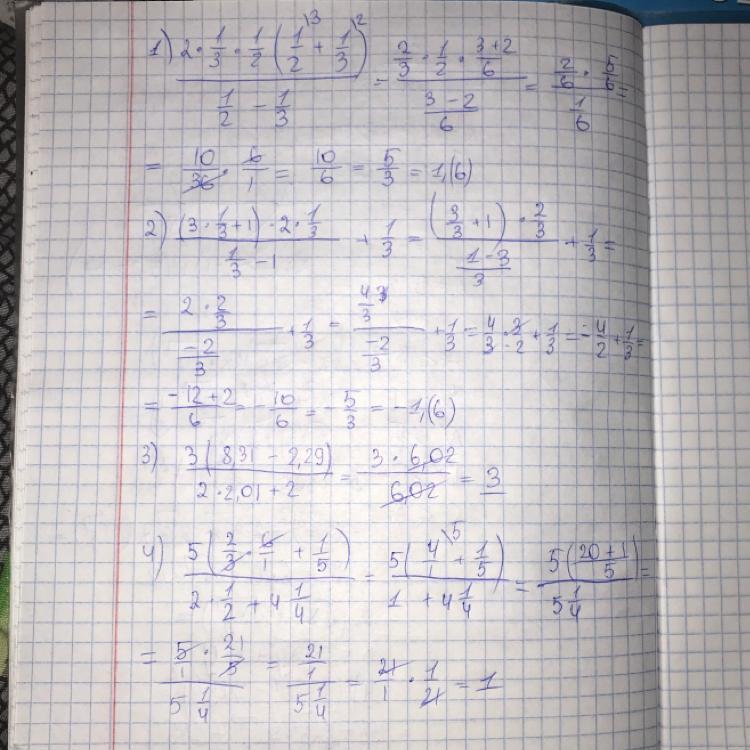 1) (2 · 1/3 · 1/2 (1/2 + 1/3)) / (1/2 − 1/3) = (2/3 · 1/2 · (3+2)/6) / ((3−2)/6) = (2/6 · 5/6) / (1/6) =
= 10/36 · 6/1 = 10/6 = 5/3 = 1,(6)
2) ((3 · 1/3 + 1) · 2 · 1/3) / (1/3 − 1) + 1/3 = ((3/3 + 1) · 2/3) / ((1−3)/3) + 1/3 =
= (2 · 2/3) / (−2/3) + 1/3 = (4/3) / (−2/3) + 1/3 = 4/3 · 3/−2 + 1/3 = −4/2 + 1/3 =
= (−12+2)/6 = −10/6 = −5/3 = −1,(6)
3) 3(8,31 − 2,29) / (2 · 2,01 + 2) = (3 · 6,02) / 6,02 = 3
4) 5(2/3 · 6/1 + 1/5) / (2 · 1/2 + 4 1/4) = 5(4/1 + 1/5) / (1 + 4 1/4) = 5((20+1)/5) / (5 1/4) =
= (5/1 · 21/5) / (5 1/4) = (21/1) / (5 1/4) = 21/1 · 1/21 = 1